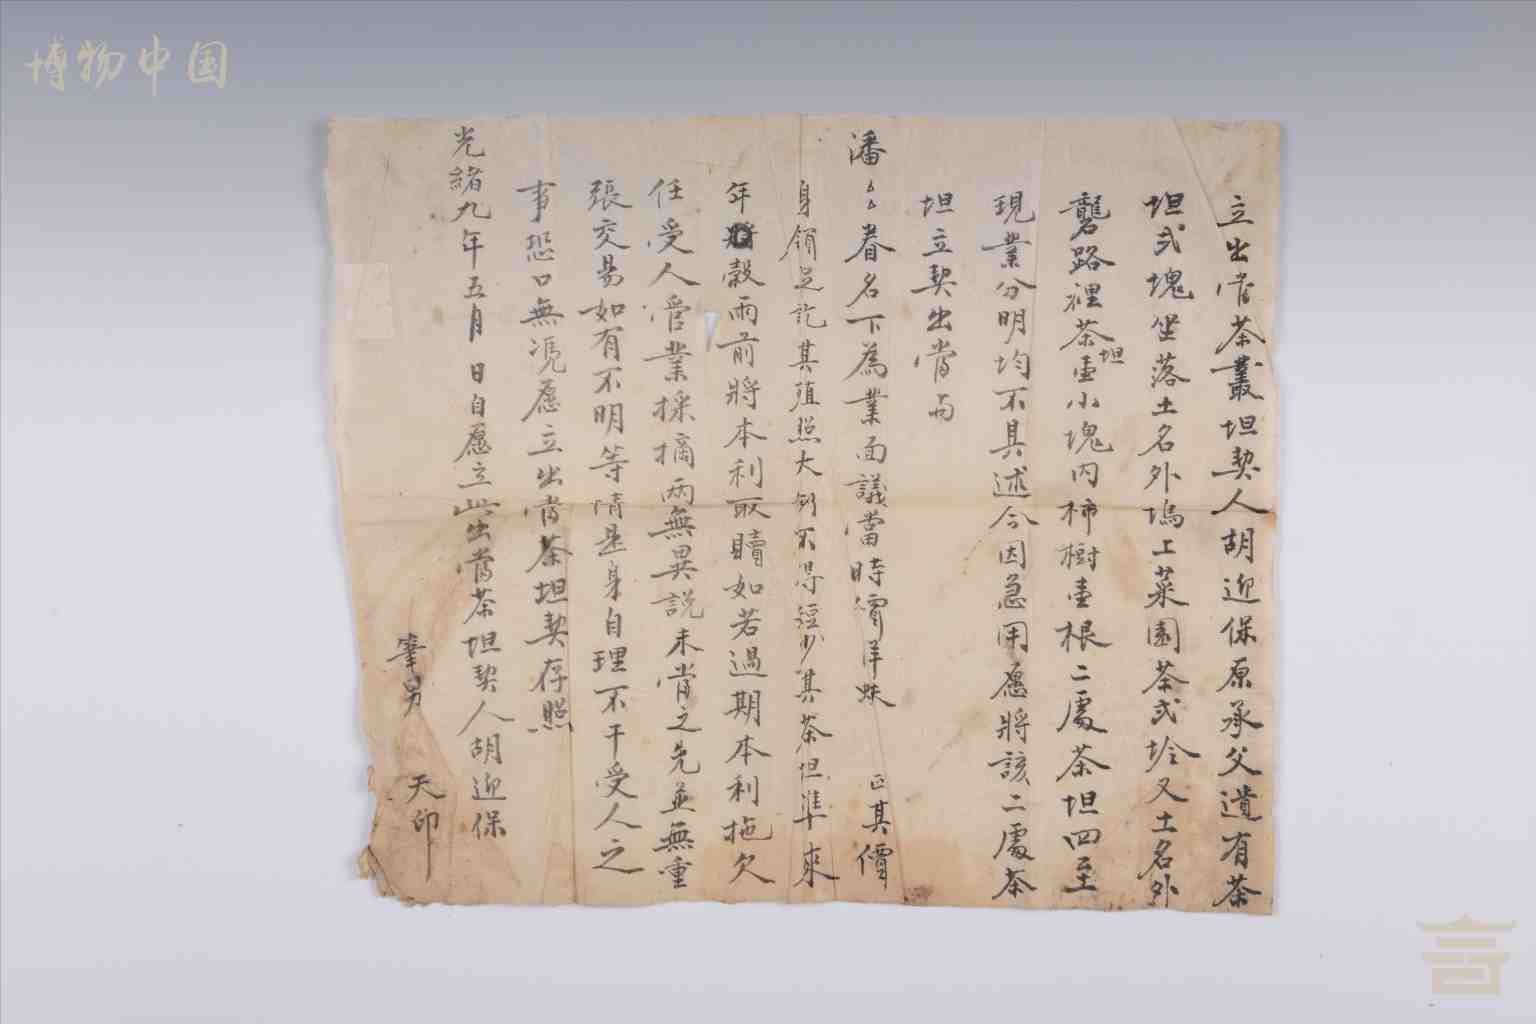 博物中国
立出當茶叢坦契人胡迎保原承父遺有茶
坦弍塊坐落土名外塢上菜園茶弍坽又土名外
礱路裡茶坦壹小塊內柿樹壹根二處茶坦四至
現業分明均不具述今因急用愿將該二處茶
坦立契出當與
潘名下為業面議當時價洋正其價
身領足訖其殖照大例不得短少其茶坦準來
年穀雨前將本利取贖如若過期本利拖欠
任受人管業採摘兩無異說未當之先並無重
張交易如有不明等情是身自理不干受人之
事恐口無馮愿立出當茶坦契存照
光緒九年五月 日自愿立此出當茶坦契人胡迎保
筆男 天印